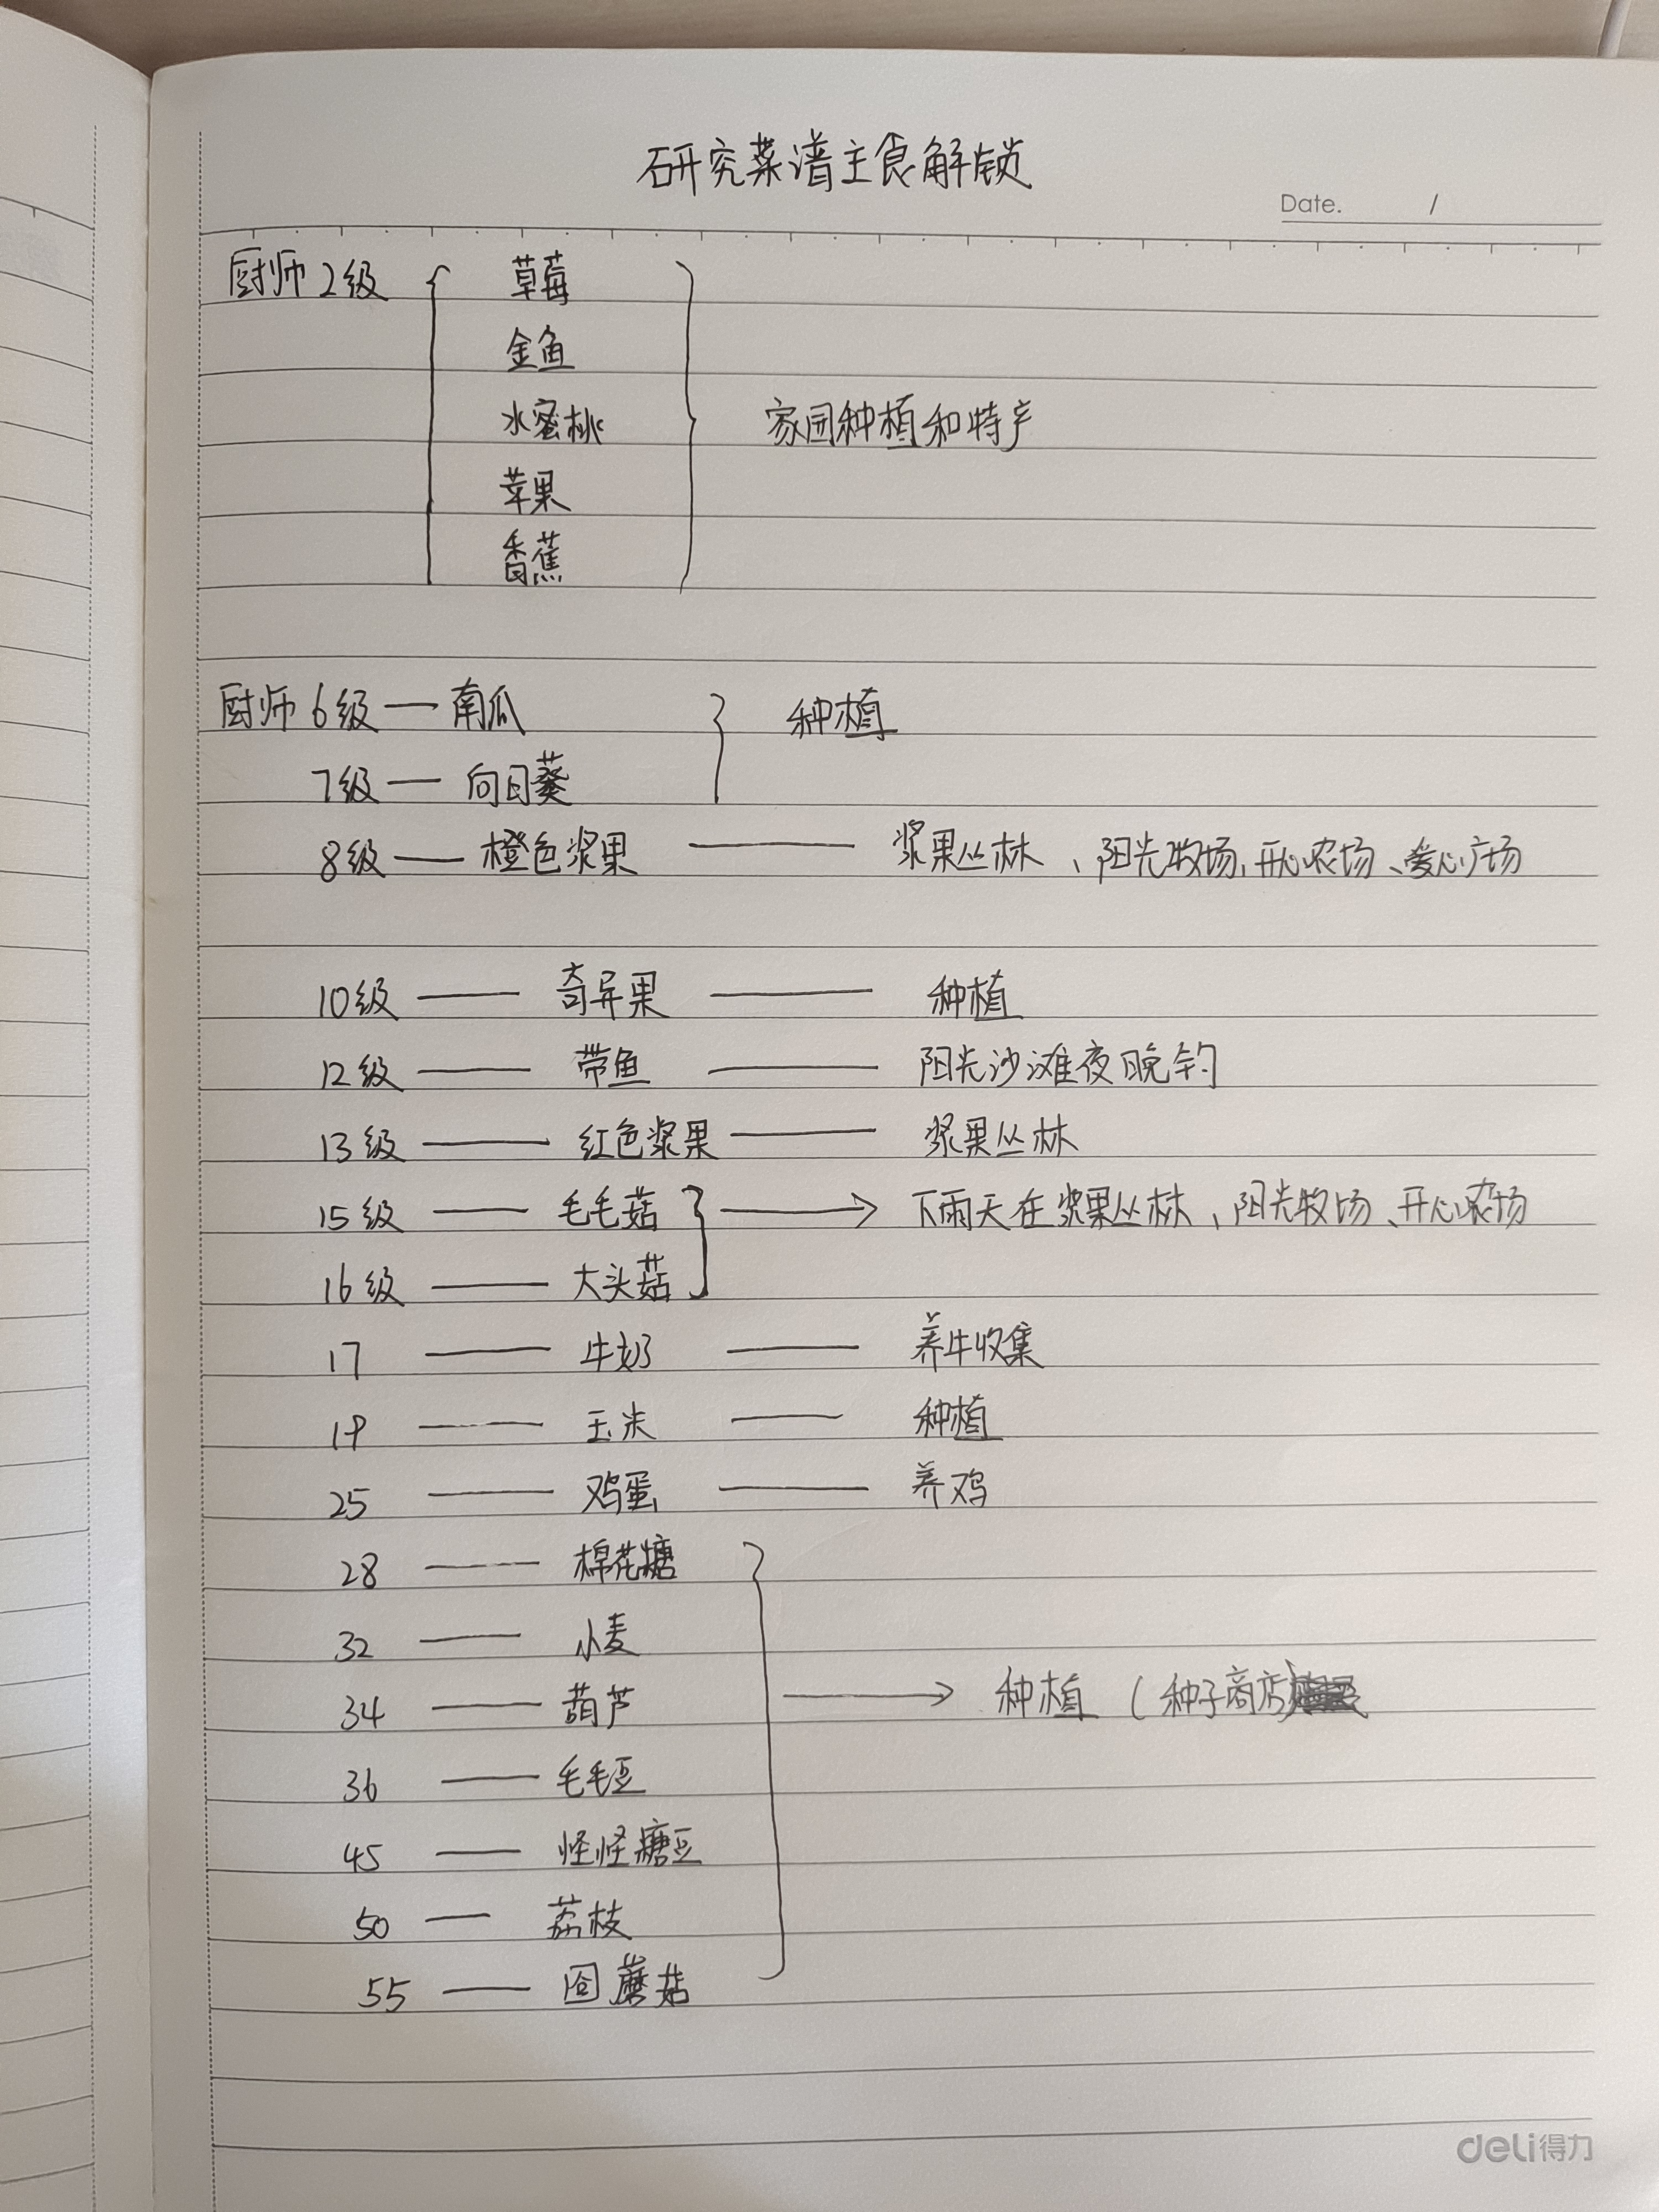 研究菜谱主食解锁
Date. /
厨师2级 { 草莓
金鱼
水蜜桃 } 家园种植和特产
苹果
香蕉
厨师6级 — 南瓜 } 种植
7级 — 向日葵
8级 — 橙色浆果 — 浆果丛林、阳光牧场、开心农场、爱心广场
10级 — 奇异果 — 种植
12级 — 带鱼 — 阳光沙滩夜晚钓
13级 — 红色浆果 — 浆果丛林
15级 — 毛毛菇 } → 下雨天在浆果丛林、阳光牧场、开心农场
16级 — 大头菇
17 — 牛奶 — 养牛收集
19 — 玉米 — 种植
25 — 鸡蛋 — 养鸡
28 — 棉花糖
32 — 小麦
34 — 葫芦 } → 种植（种子商店）
36 — 毛毛豆
45 — 怪怪糖豆
50 — 荔枝
55 — 囧蘑菇
deli得力